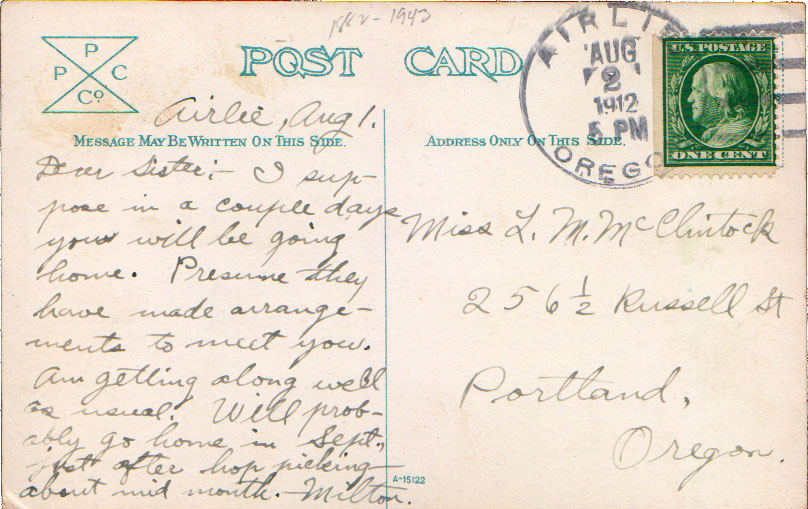 1882-1943
P
P C
Co.
POST CARD
AIRLIE
AUG
2
1912
5 PM
OREGO
U.S. POSTAGE
ONE CENT
Airlie, Aug 1.
MESSAGE MAY BE WRITTEN ON THIS SIDE.
Dear Sister:- I sup-
pose in a couple days
your will be going
home. Presume they
have made arrange-
ments to meet you.
Am getting along well
as usual. Will prob-
ably go home in Sept.,
just after hop picking-
about mid month. -Milton.
ADDRESS ONLY ON THIS SIDE.
Miss L. M. McClintock
256 1/2 Russell St
Portland,
Oregon.
A-15122